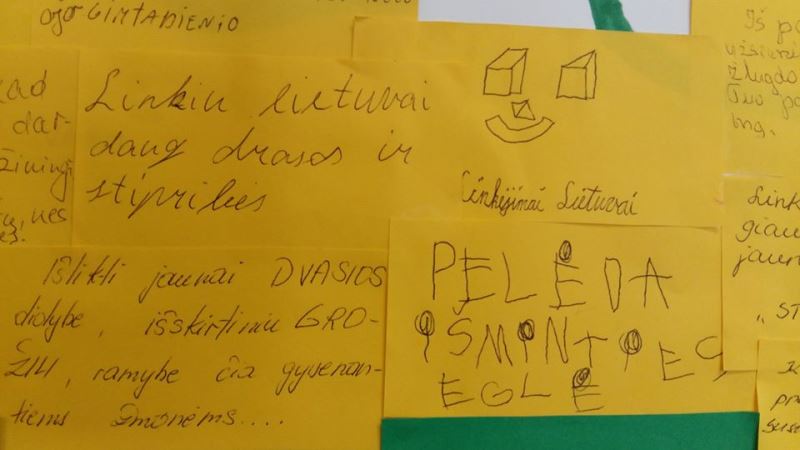 OJO GIMTADIENIO
Linkiu lietuvai
daug drąsos ir
stiprybės
Linkėjimai Lietuvai
Išlikti jaunai DVASIOS
didybe, išskirtiniu GRO-
ŽIU, ramybe čia gyvenan-
tiems žmonėms....
PELĖDA
IŠMINTIES
EGLĖ
dar-
žiningi
nes
Iš
žlugdo
Tuo
ing.
Link
giau
jaun
„ ST
K
pr
suse